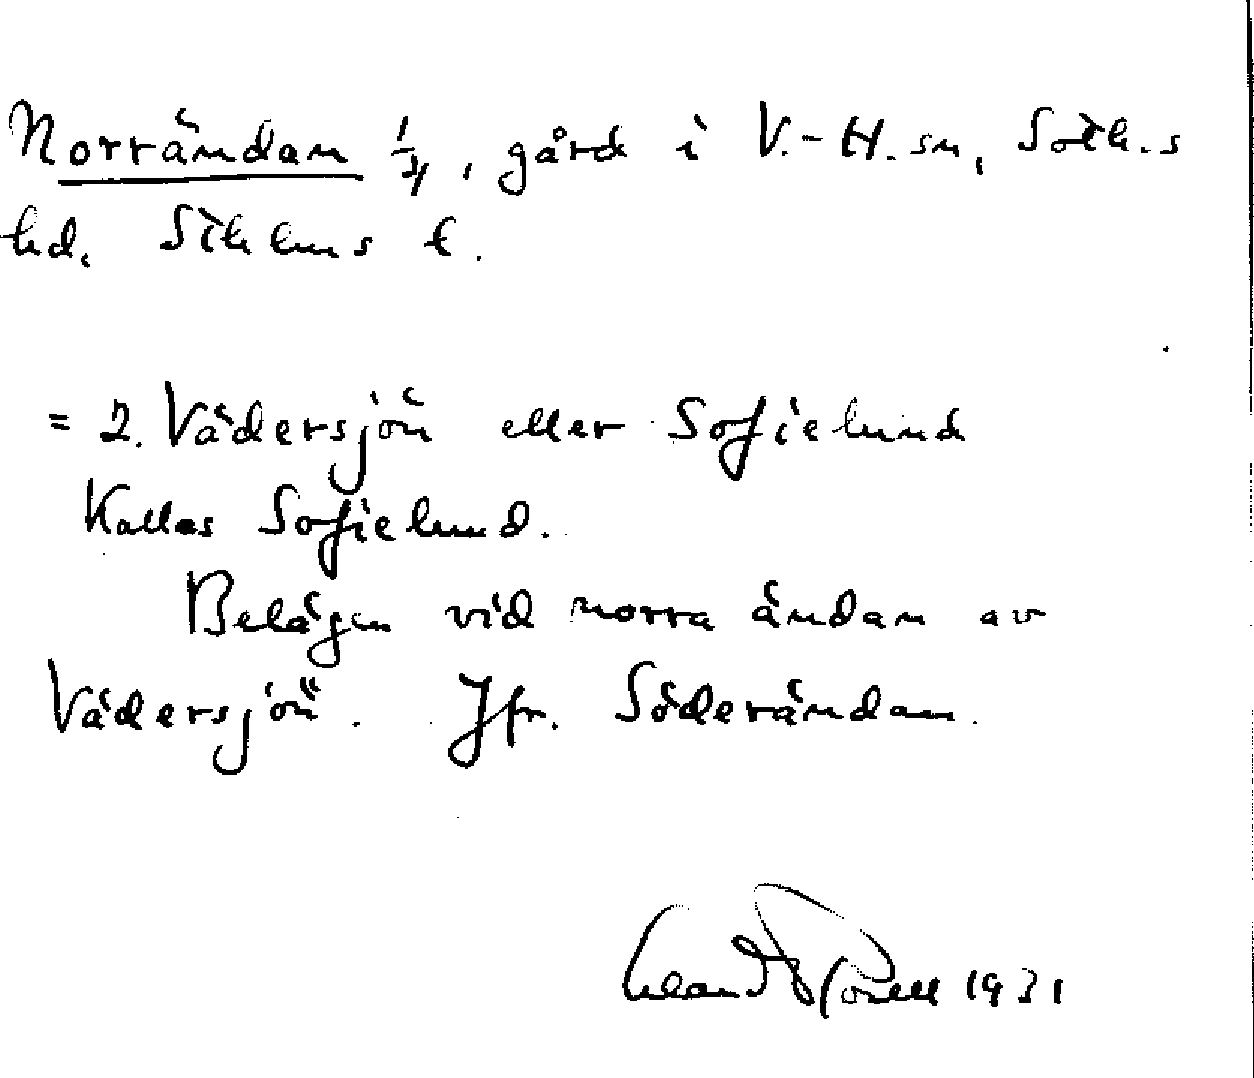 Norrändan 1/4, gård i V.-H. sn, Soth.s
hd. Sthlms l.
= 2. Vädersjön eller Sofielund
Kallas Sofielund.
Belägen vid norra ändan av
Vädersjön. Jfr. Söderändan.
1931